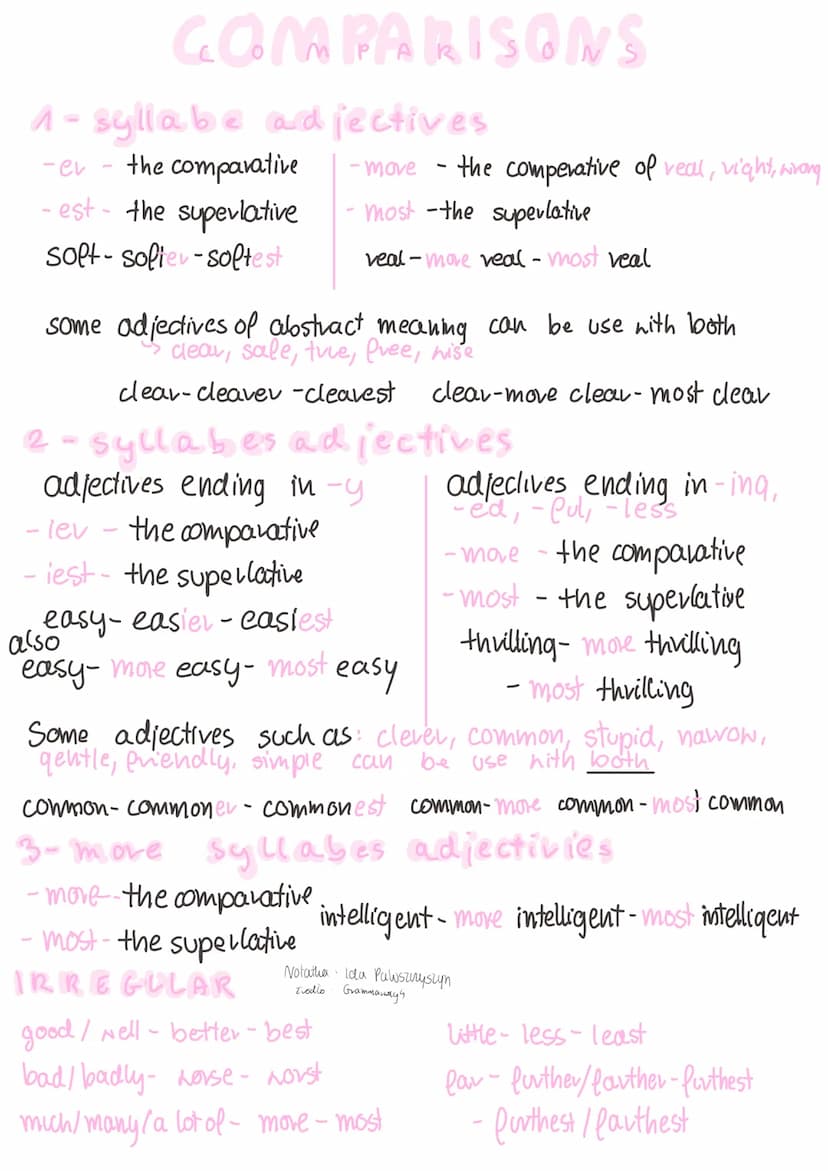 COMPARISONS
COMPARISONS
1 - syllabe adjectives
-er - the comparative
- est - the superlative
soft - softer - softest
- more - the comperative of real, right, wrong
- most - the superlative
real - more real - most real
some adjectives of abstract meaning can be use with both
↳ clear, safe, true, free, wise
clear - clearer - clearest clear - more clear - most clear
2 - syllabes adjectives
adjectives ending in -y
- ier - the comparative
- iest - the superlative
easy - easier - easiest
also
easy - more easy - most easy
adjectives ending in -ing,
-ed, -ful, -less
- more - the comparative
- most - the superlative
thrilling - more thrilling
- most thrilling
Some adjectives such as: clever, common, stupid, narrow,
gentle, friendly, simple can be use with both
common - commoner - commonest common - more common - most common
3 - more syllabes adjectivies
- more - the comparative
- most - the superlative
intelligent - more intelligent - most intelligent
IRREGULAR
Notatka · Ida
good / well - better - best
bad / badly - worse - worst
much / many / a lot of - more - most
little - less - least
far - further / farther - furthest
- furthest / farthest